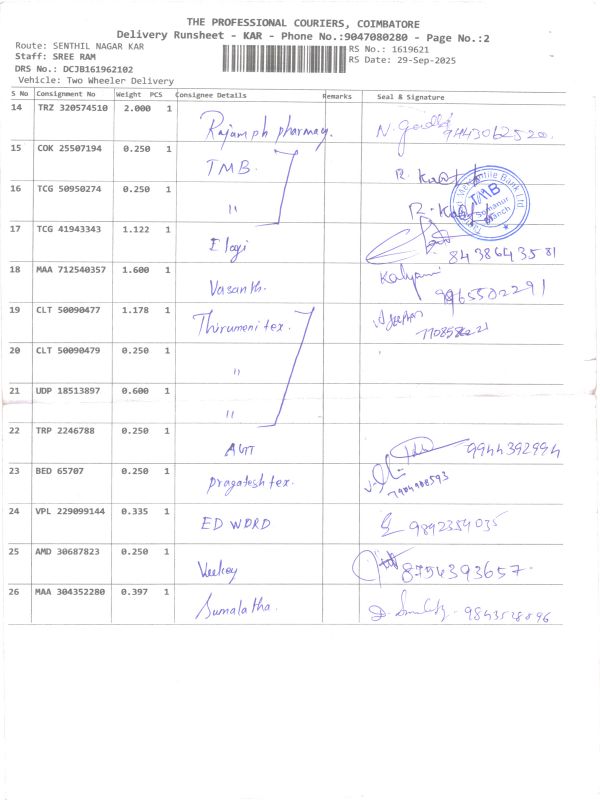 THE PROFESSIONAL COURIERS, COIMBATORE
Delivery Runsheet - KAR - Phone No.:9047080280 - Page No.:2
Route: SENTHIL NAGAR KAR
RS No.: 1619621
Staff: SREE RAM
RS Date: 29-Sep-2025
DRS No.: DCJB161962102
Vehicle: Two Wheeler Delivery
S No Consignment No Weight PCS Consignee Details Remarks Seal & Signature
14 TRZ 320574510 2.000 1 pharmacy N. 9443062520
15 COK 25507194 0.250 1 TMB. R.
16 TCG 50950274 0.250 1 " R.
Mercantile Bank Ltd
TMB
Branch
17 TCG 41943343 1.122 1 Elogi 8438643581
18 MAA 712540357 1.600 1 Vasanth. Kalyani 9965502291
19 CLT 50090477 1.178 1 Thirumeni tex.
20 CLT 50090479 0.250 1 "
21 UDP 18513897 0.600 1 "
22 TRP 2246788 0.250 1 9944392994
23 BED 65707 0.250 1 pragatesh tex.
24 VPL 229099144 0.335 1 ED WORD 9892354035
25 AMD 30687823 0.250 1 Veekey 8754393657.
26 MAA 304352280 0.397 1 Sumalatha. 9843528896